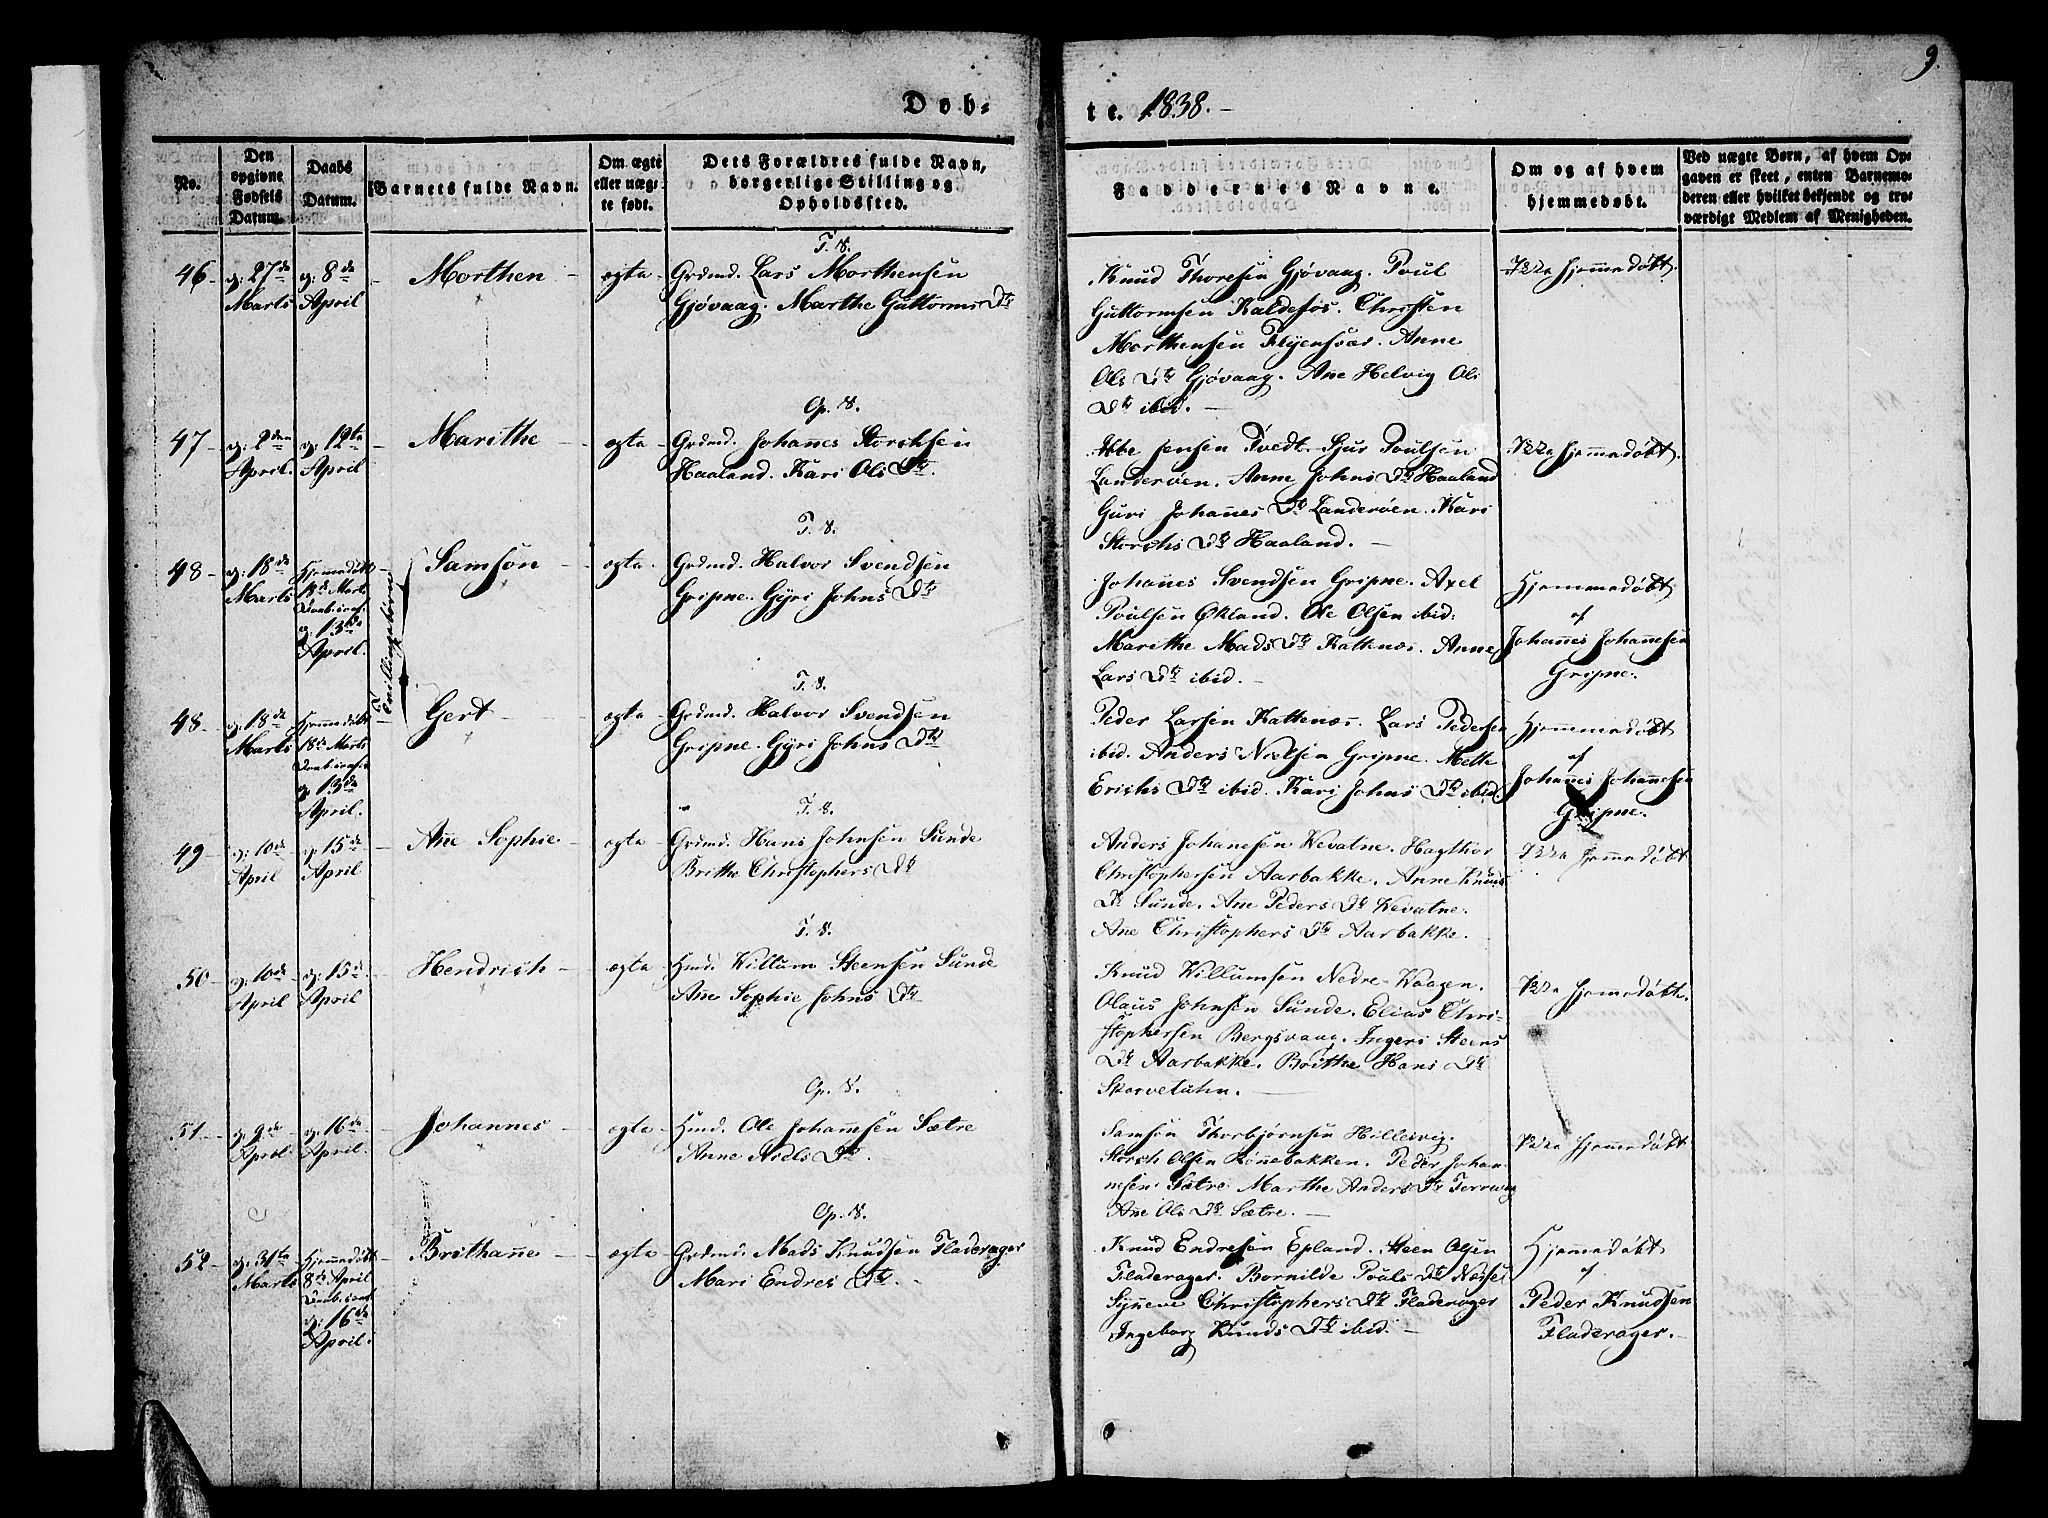 9.
Døb-
te. 1838. -
No.
Den
opgivne
Fødsels
Datum.
Daabs
Datum.
Barnets fulde Navn.
Om ægte
eller uæg-
te født.
Dets Forældres fulde Navn,
borgerlige Stilling og
Opholdssted.
Faddernes Navne.
Om og af hvem
hjemmedøbt.
Ved uægte Børn, af hvem Op-
gaven er skeet, enten Barnemo-
deren eller hvilket bekjendt og tro-
værdigt Medlem af Menigheden.
T. S.
46 -
27de
Marts
8de
April
Morthen
ægte
Grdmd. Lars Morthensen
Gjøvaag. Marthe Guttorms Dtr
Knud Thoresen Gjøvaag. Poul
Guttormsen Kaldefos. Christen
Morthensen Fløjensvær. Anne
Ols Dtr Gjøvaag. Ane Helvig Ols
Dtr ibid. -
Ikke hjemmedøbt.
Op. S.
47 -
2den
April.
12te
April
Marithe
ægte
Grdmd. Johanes Storchsen
Haaland. Kari Ols Dtr
Jensen Tvedt. Sjur Poulsen
Landerøen. Anne Johns Dtr Haaland
Guri Johannes Dtr Landerøen. Kari
Storchs Dtr Haaland. -
Ikke hjemmedøbt.
T. S.
48 -
18de
Marts
Hjemmedøbt
18de Marts
13de
April.
Tvillingebørn
Samson
ægte
Grdmd. Halvor Svendsen
Gripne. Gyri Johns Dtr
Johannes Svendsen Gripne. Axel
Poulsen Økland. Ole Olsen ibid:
Marithe Mads Dtr Kattenæs. Anne
Lars Dtr ibid. -
Hjemmedøbt
af
Johannes Johannesen
Gripne.
T. S.
48 -
18de
Marts
Hjemmedøbt
18de Marts
13de
April.
Gert
ægte
Grdmd. Halvor Svendsen
Gripne. Gyri Johns Dtr
Peder Larsen Kattenæs. Lars Pedersen
ibid. Anders Nielsen Gripne. Mette
Erichs Dtr ibid. Kari Johns Dtr ibid.
Hjemmedøbt
af
Johannes Johannesen
Gripne.
T. S.
49
10de
April
15de
April
Ane Sophie
ægte
Grdmd. Hans Johnsen Sunde
Brithe Christophers Dtr
Anders Johanesen Vevatne. Hagthor
Christophersen Aarbakke. Anne Knuds
Dtr Sunde. Ane Peders Dtr Vevatne.
Ane Christophers Dtr Aarbakke.
Ikke hjemmedøbt
T. S.
50 -
10de
April
15de
April
Hendrich
ægte
Hmd. Willum Steensen Sunde
Ane Sophie Johns Dtr
Knud Willumsen Nedre-Vaagen.
Olaus Johnsen Sunde. Elias Chri-
stophersen Bergsvaag. Ingeri Steens
Dtr Aarbakke. Brithe Hans Dtr
Skorvetuhn. -
Ikke hjemmedøbt.
Op. S.
51 -
9de
April.
16de
April.
Johannes
ægte
Hmd. Ole Johannesen Sætre
Anne Niels Dtr. -
Samson Thorbjørnsen Hillesvig.
Storch Olsen Rønnebakken. Peder Johan-
nesen Sætre Marthe Anders Dtr
Ane Ols Dtr Sætre. -
Ikke hjemmedøbt
Op. S.
52 -
31te
Marts
Hjemmedøbt
8de April
16de
April.
Brithane
ægte
Grdmd. Mads Knudsen Fladerager
Mari Endres Dtr. -
Knud Endresen Epland. Steen Olsen
Fladerager. Bornilde Pouls Dtr
Synneve Christophers Dtr Fladerager
Ingeborg Knuds Dtr ibid. -
Hjemmedøbt
af
Peder Knudsen
Fladerager. -